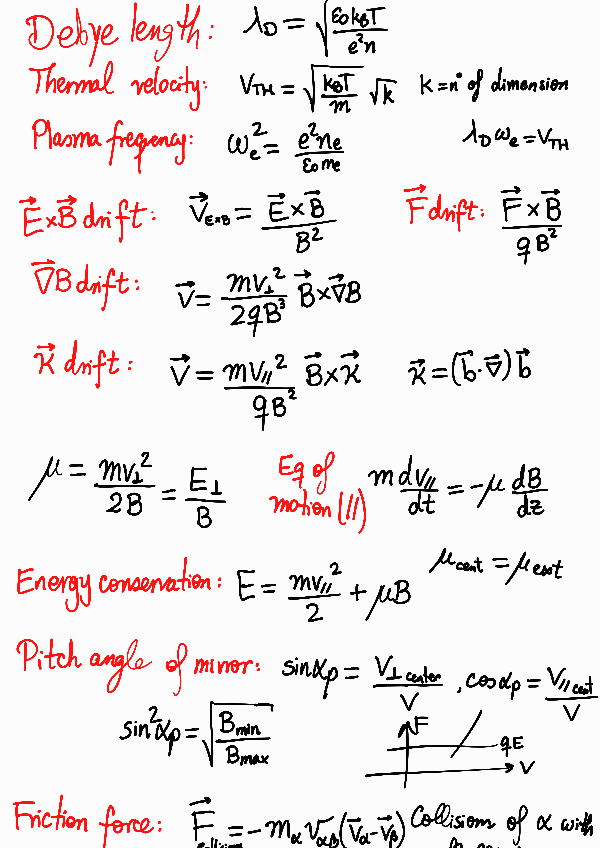 Debye length: λD = √(ε0kBT / e²n)
Thermal velocity: VTH = √(kBT / m) √k k = n° of dimension
Plasma frequency: ωe² = e²ne / ε0me λD ωe = VTH
E⃗xB⃗ drift: V⃗ExB = E⃗ × B⃗ / B² F⃗ drift: F⃗ × B⃗ / qB²
∇⃗B drift: V⃗ = mv⊥² / 2qB³ B⃗×∇⃗B
κ⃗ drift: V⃗ = mv∥² / qB² B⃗×κ⃗ κ⃗ = (b⃗·∇⃗)b⃗
μ = mv⊥² / 2B = E⊥ / B Eq of motion (//) m dv∥ / dt = -μ dB / dz
Energy conservation: E = mv∥² / 2 + μB μcent = μexit
Pitch angle of mirror: sinαp = V⊥center / V , cosαp = V∥cent / V
sin²αp = √(Bmin / Bmax) F qE V
Friction force: F⃗ = -mα ναβ(V⃗α-V⃗β) Collisions of α with